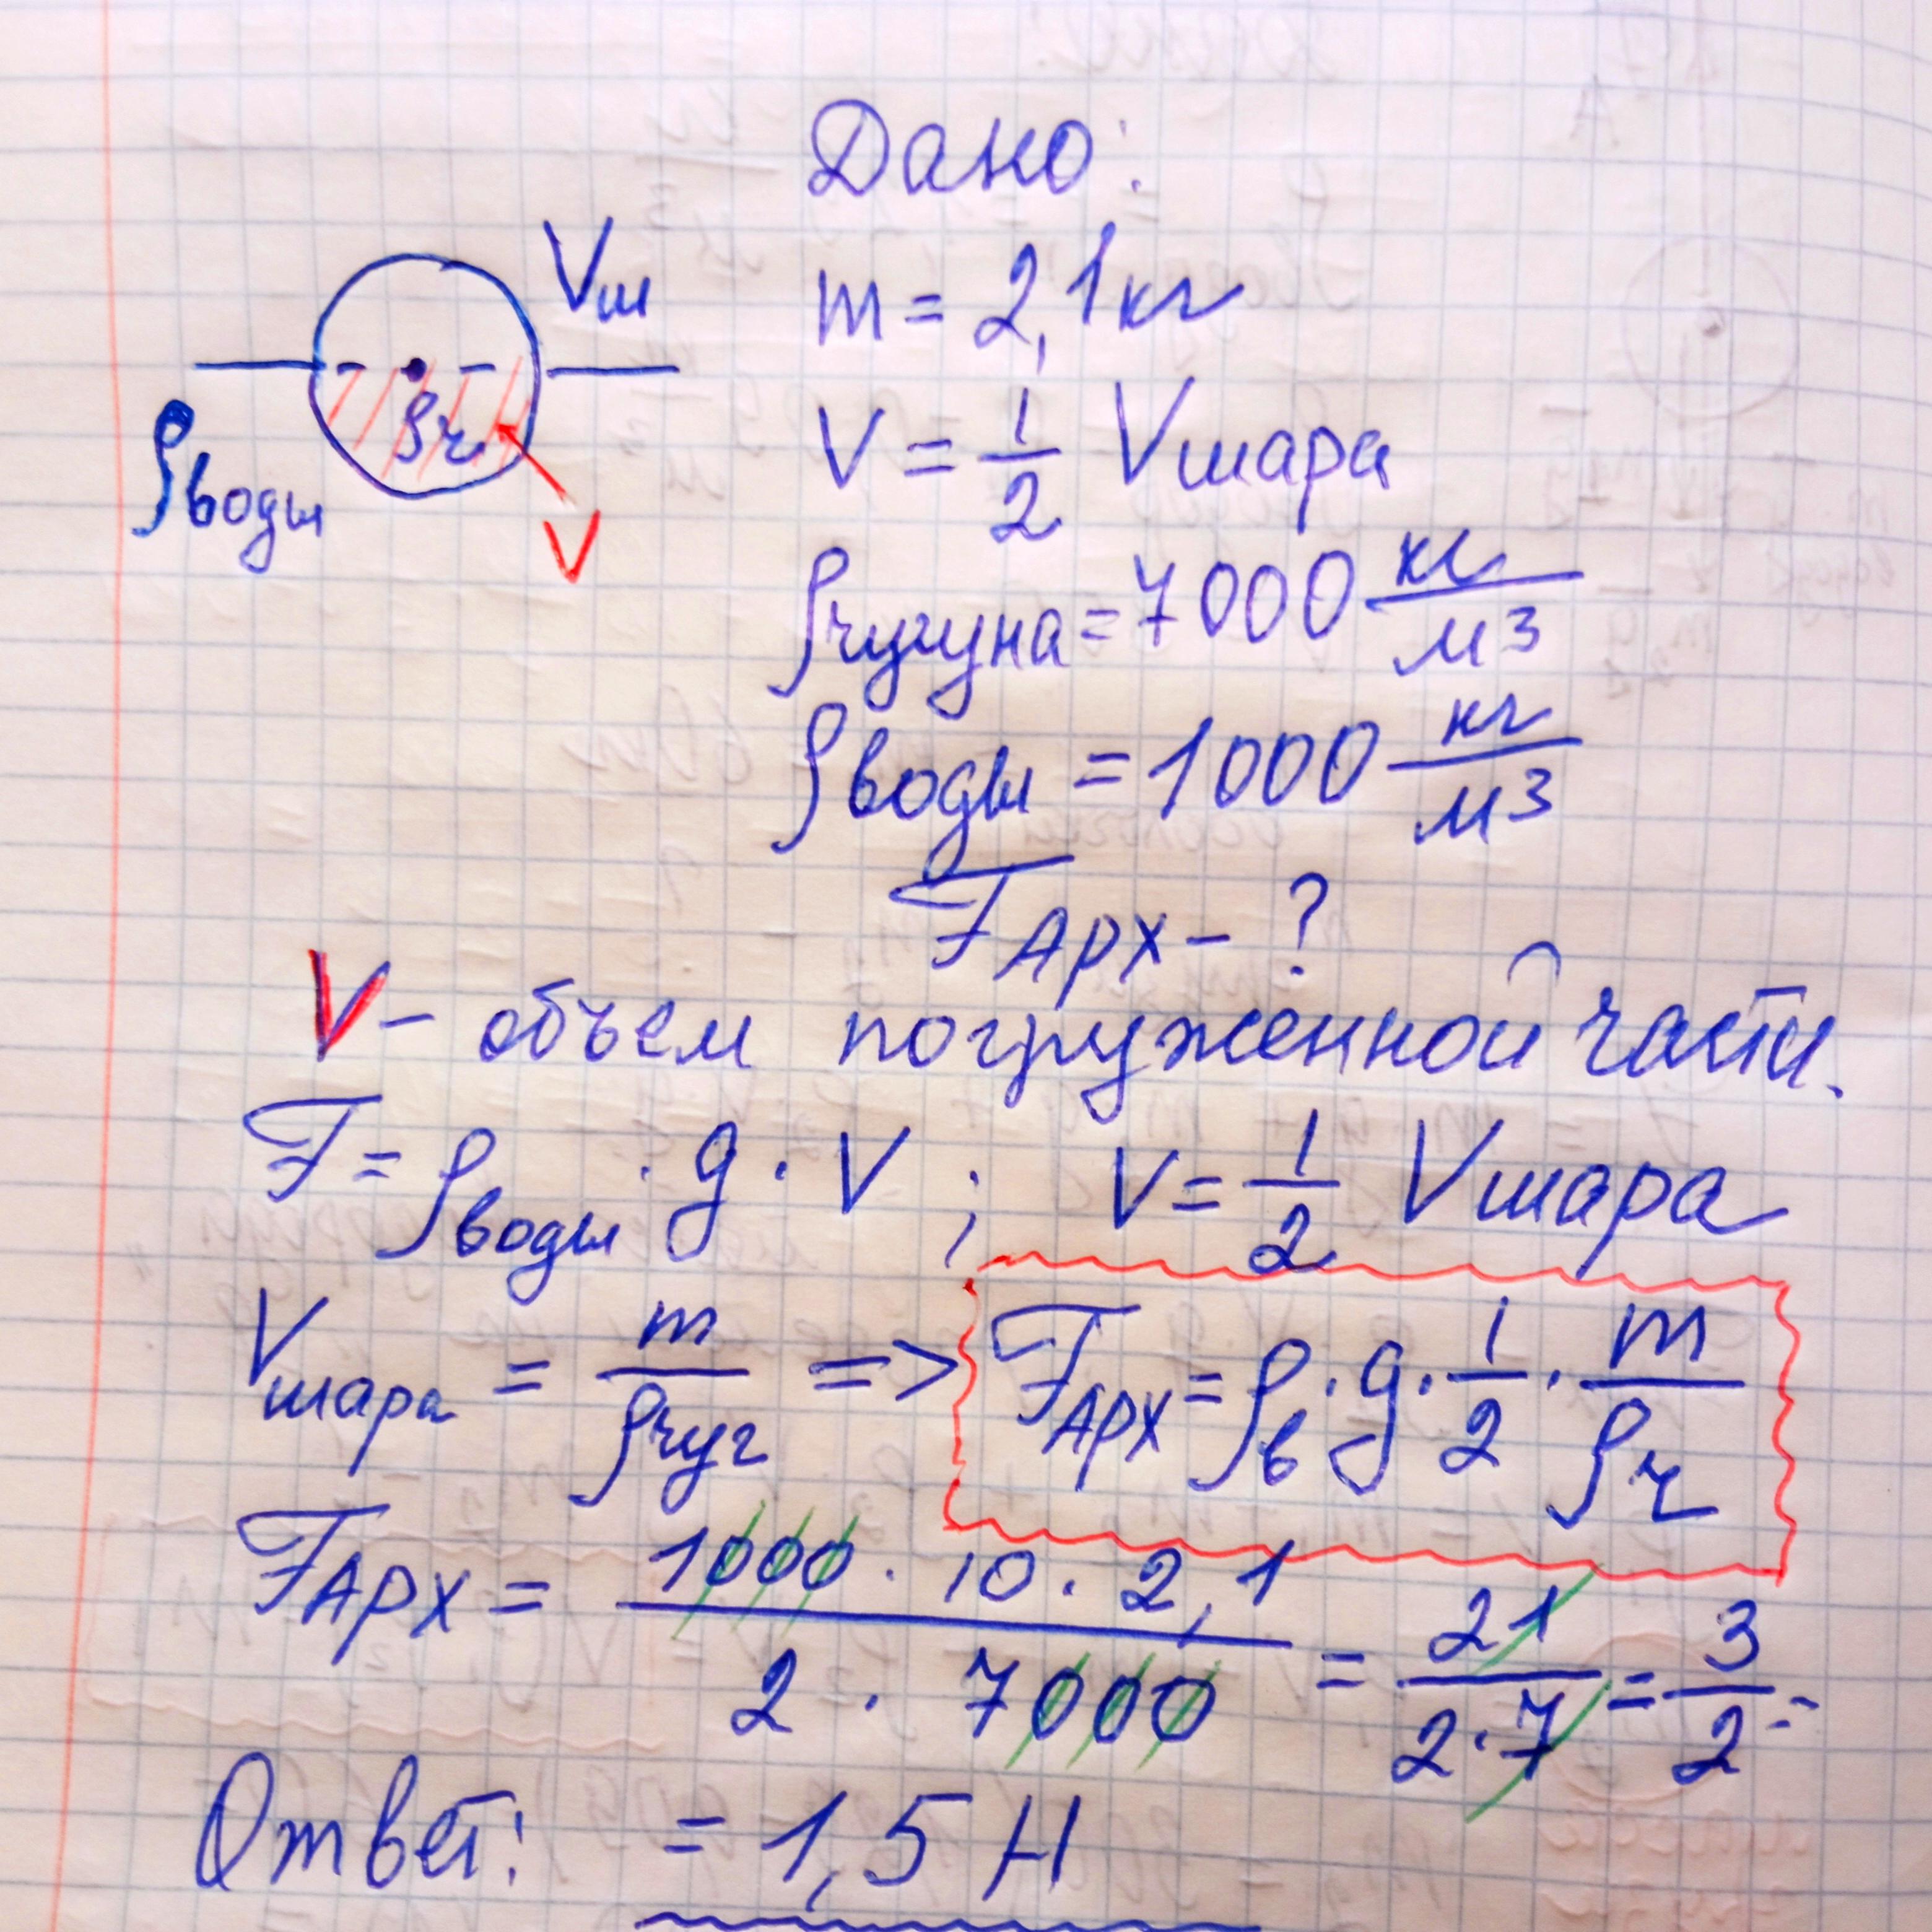 Дано:
Vш
m = 2,1 кг
ρч
V = 1/2 Vшара
ρводы
V
ρчугуна = 7000 кг/м³
ρводы = 1000 кг/м³
FАрх - ?
V - объем погруженной части.
F = ρводы · g · V ; V = 1/2 Vшара
Vшара = m/ρчуг => FАрх = ρв · g · 1/2 · m/ρч
FАрх = 1000 · 10 · 2,1 / 2 · 7000 = 21 / 2 · 7 = 3/2 =
Ответ: = 1,5 Н